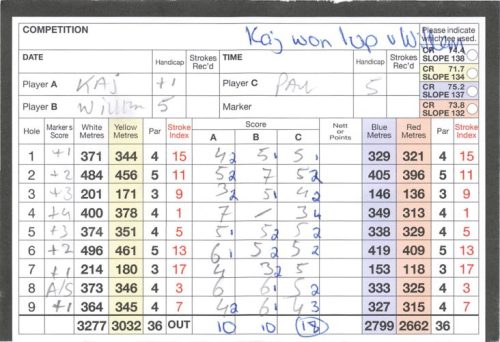 COMPETITION Kaj won 1up v Willem Please indicate which tee used.
DATE Handicap Strokes Rec'd TIME Handicap Strokes Rec'd CR 74.4 SLOPE 138
CR 71.7 SLOPE 134
Player A KAJ +1 Player C PAU 5 CR 75.2 SLOPE 137
Player B Willem 5 Marker CR 73.8 SLOPE 132
Hole Markers Score White Metres Yellow Metres Par Stroke Index Score A B C Nett or Points Blue Metres Red Metres Par Stroke Index
1 +1 371 344 4 15 4 2 5 1 5 1 329 321 4 15
2 +2 484 456 5 11 5 2 7 5 2 405 396 5 11
3 +3 201 171 3 9 3 2 5 1 4 2 146 136 3 9
4 +4 400 378 4 1 7 - 3 4 349 313 4 1
5 +3 374 351 4 5 5 1 5 2 5 2 338 329 4 5
6 +2 496 461 5 13 6 1 5 2 5 2 419 409 5 13
7 +1 214 180 3 17 4 3 2 5 153 118 3 17
8 A/S 373 346 4 3 6 6 1 5 2 333 325 4 3
9 +1 364 345 4 7 4 2 6 1 4 3 327 315 4 7
3277 3032 36 OUT 10 10 18 2799 2662 36